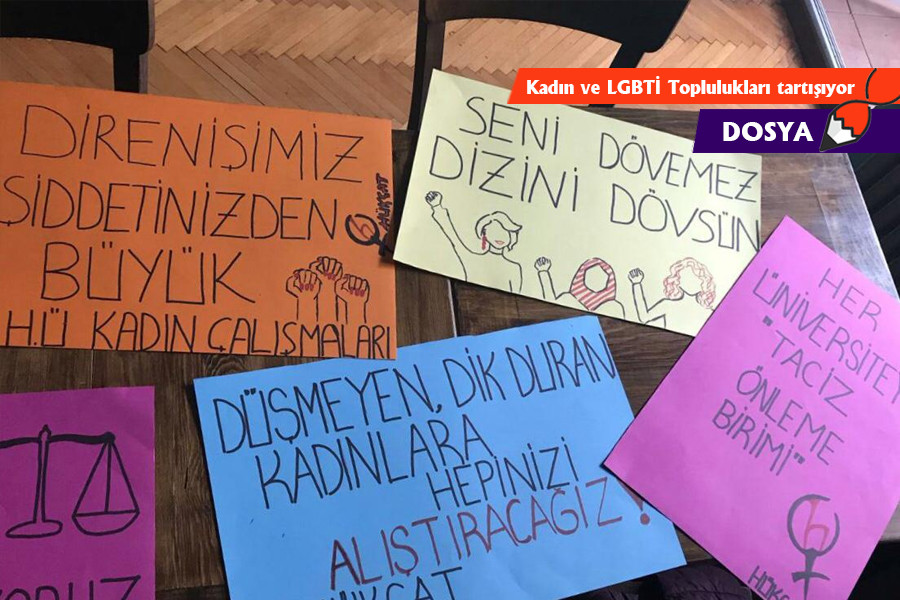 Kadın ve LGBTİ Toplulukları tartışıyor
DOSYA
DİRENİŞİMİZ
ŞİDDETİNİZDEN
BÜYÜK
H.Ü KADIN ÇALIŞMALARI
SENİ DÖVEMEZ
DİZİNİ DÖVSÜN
HER
ÜNİVERSİTEYE
"TACİZ
ÖNLEME
BİRİMİ"
DÜŞMEYEN, DİK DURAN
KADINLARA
HEPİNİZİ
ALIŞTIRACAĞIZ!